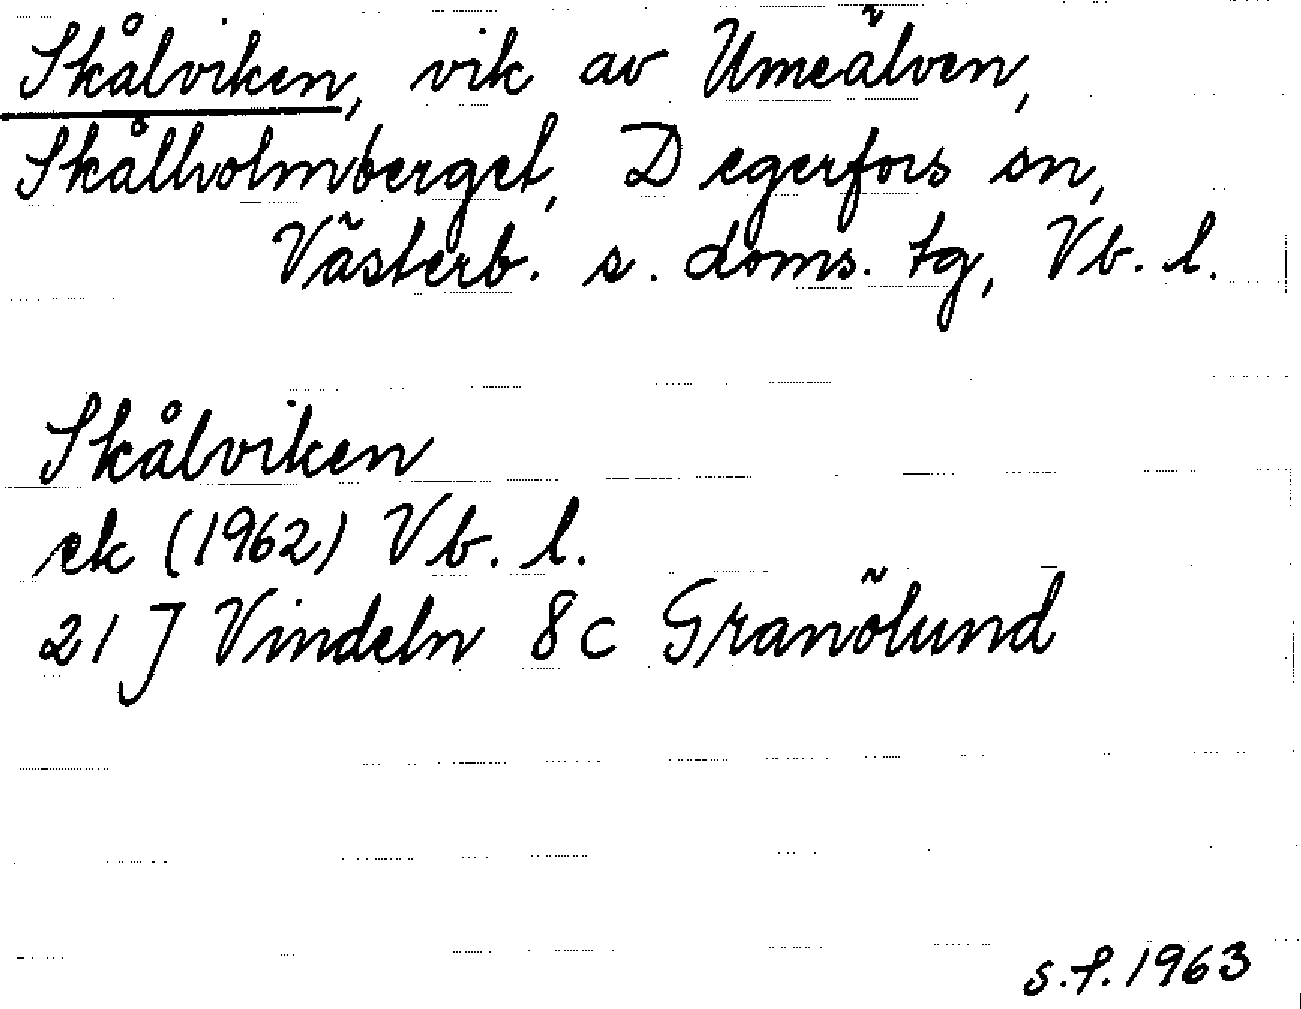 Skålviken, vik av Umeälven,
Skålholmberget, Degerfors sn,
Västerb. s. doms. tg, Vb. l.
Skålviken
ek (1962) Vb. l.
21 J Vindeln 8 c Granölund
s.f. 1963